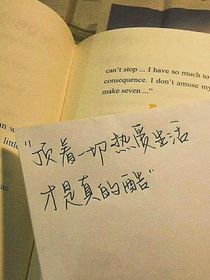 can't stop ... I have so much to
consequence. I don't amuse my
make seven ..."
"顶着一切热爱生活
才是真的酷"